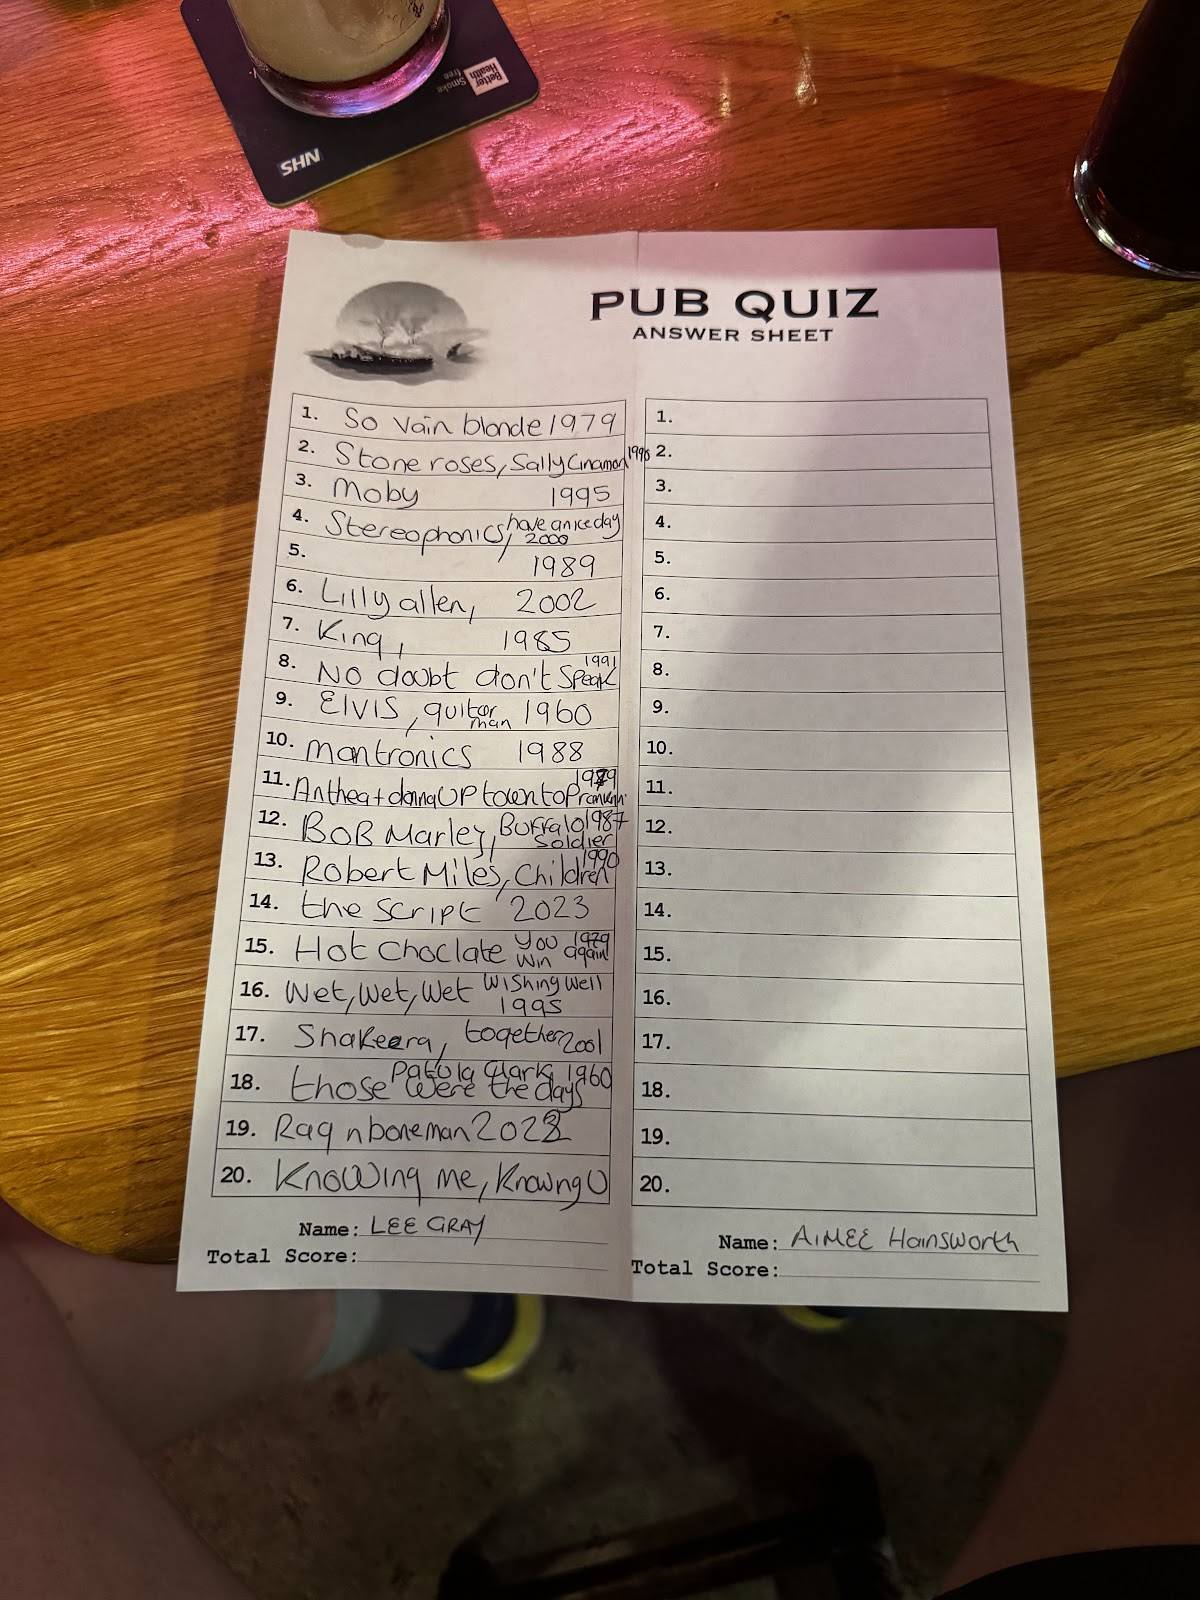 NHS
Better Health
Smoke free
PUB QUIZ
ANSWER SHEET
1. So vain blonde 1979
2. Stone roses, Sally Cinamon 1990
3. Moby 1995
4. Stereophonics, have a nice day 2000
5. 1989
6. Lilly allen, 2002
7. King, 1985
8. No doubt don't speak 1991
9. Elvis, guitar man 1960
10. Mantronics 1988
11. Anthea + donna UP town top 1979
12. BOB Marley, Buffalo soldier 1987
13. Robert Miles, Children 1990
14. the script 2023
15. Hot Choclate You win again 1979
16. Wet, Wet, Wet Wishing well 1995
17. Shakeera, together 2001
18. those were the days Patula Clark 1960
19. Rag n boneman 2023
20. Knowing me, Knowng U
Name: LEE GRAY
Total Score:
1.
2.
3.
4.
5.
6.
7.
8.
9.
10.
11.
12.
13.
14.
15.
16.
17.
18.
19.
20.
Name: AIMEE Hainsworth
Total Score: